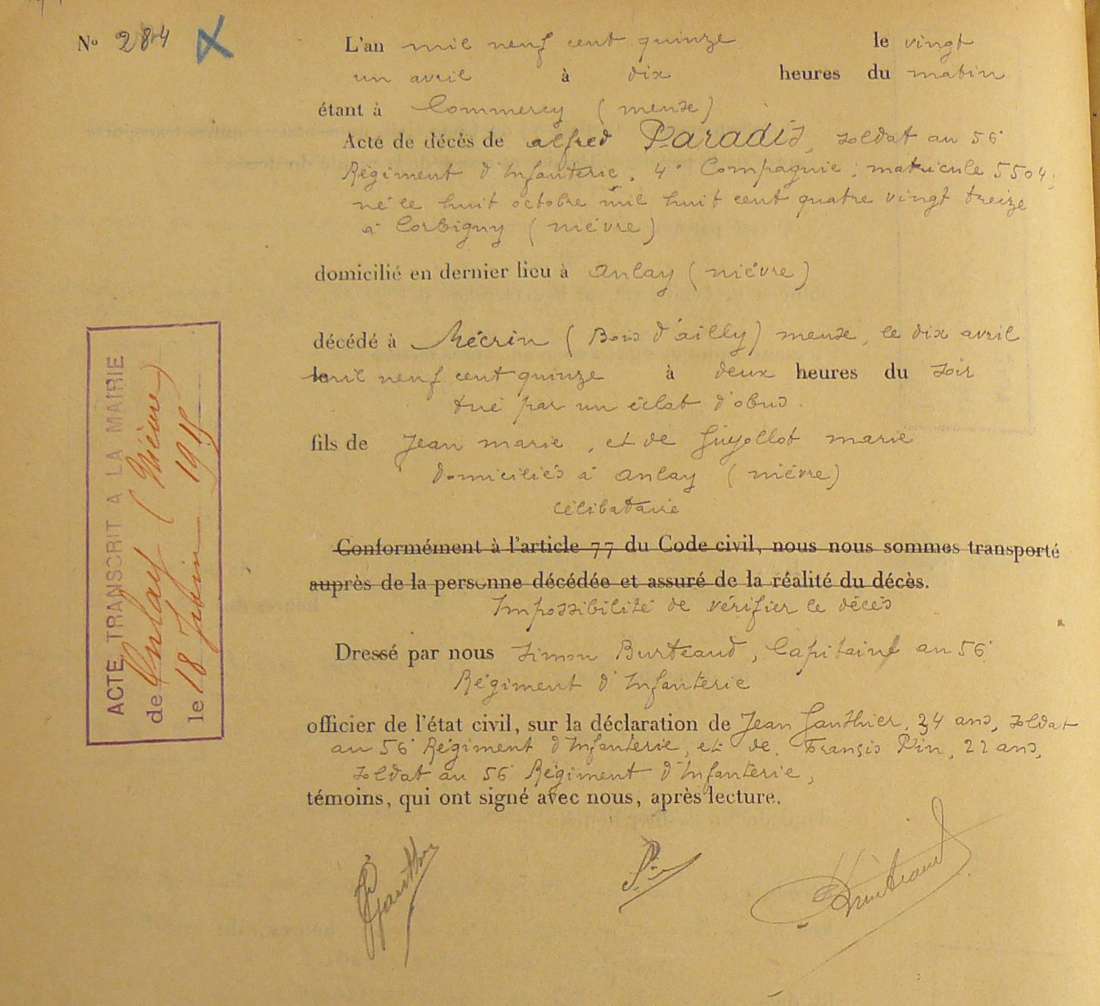 N° 284
L'an mil neuf cent quinze le vingt
un avril à dix heures du matin
étant à Commercy (meuse)
Acte de décès de Alfred Paradis, soldat au 56e
Régiment d'Infanterie, 4e Compagnie ; matricule 5504 ;
né le huit octobre mil huit cent quatre vingt treize
à Corbigny (nièvre)
domicilié en dernier lieu à Anlay (nièvre)
décédé à Mécrin (Bois d'ailly) meuse, le dix avril
mil neuf cent quinze à deux heures du soir
tué par un éclat d'obus.
fils de Jean marie, et de Guyollot marie
domiciliés à Anlay (nièvre)
célibataire
Conformément à l'article 77 du Code civil, nous nous sommes transporté
auprès de la personne décédée et assuré de la réalité du décès.
Impossibilité de vérifier le décès
Dressé par nous Simon Burteaud, Capitaine au 56e
Régiment d'Infanterie
officier de l'état civil, sur la déclaration de Jean Gauthier, 34 ans, soldat
au 56e Régiment d'Infanterie, et de Françis Pin, 22 ans,
soldat au 56e Régiment d'Infanterie,
témoins, qui ont signé avec nous, après lecture.
ACTE TRANSCRIT A LA MAIRIE
de Anlay (Nièvre)
le 18 Juin 1915